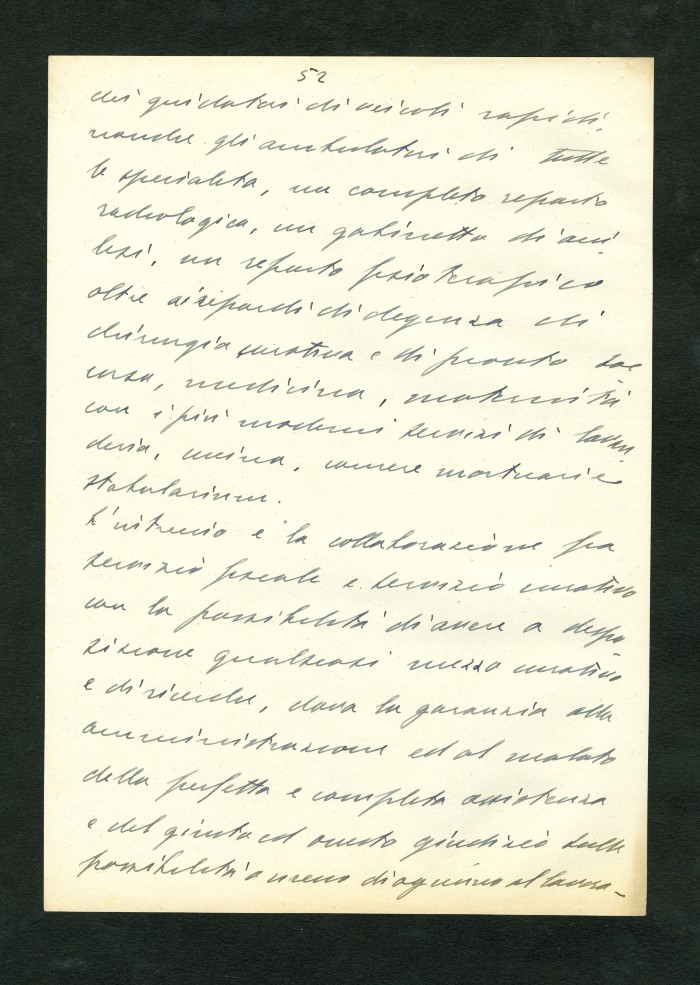 52
dei guidatori di veicoli rapidi,
nonche gli ambulatori di tutte
le specialità, un completo reparto
radiologico, un gabinetto di ana
lisi, un reparto fisioterapico
oltre ai reparti di degenza di
chirurgia curativa e di pronto soc
corso, medicina, maternità
con i più moderni servizi di lavan
deria, cucina, camere mortuarie
stabularium.
L'intreccio e la collaborazione fra
servizio fiscale e servizio curativo
con la possibilità di avere a dispo
sizione qualsiasi mezzo curativo
e di ricerche, dava la garanzia alla
amministrazione ed al malato
della perfetta e completa assistenza
e del giusto ed onesto giudizio sulle
possibilità o meno di ognuno al lavoro-